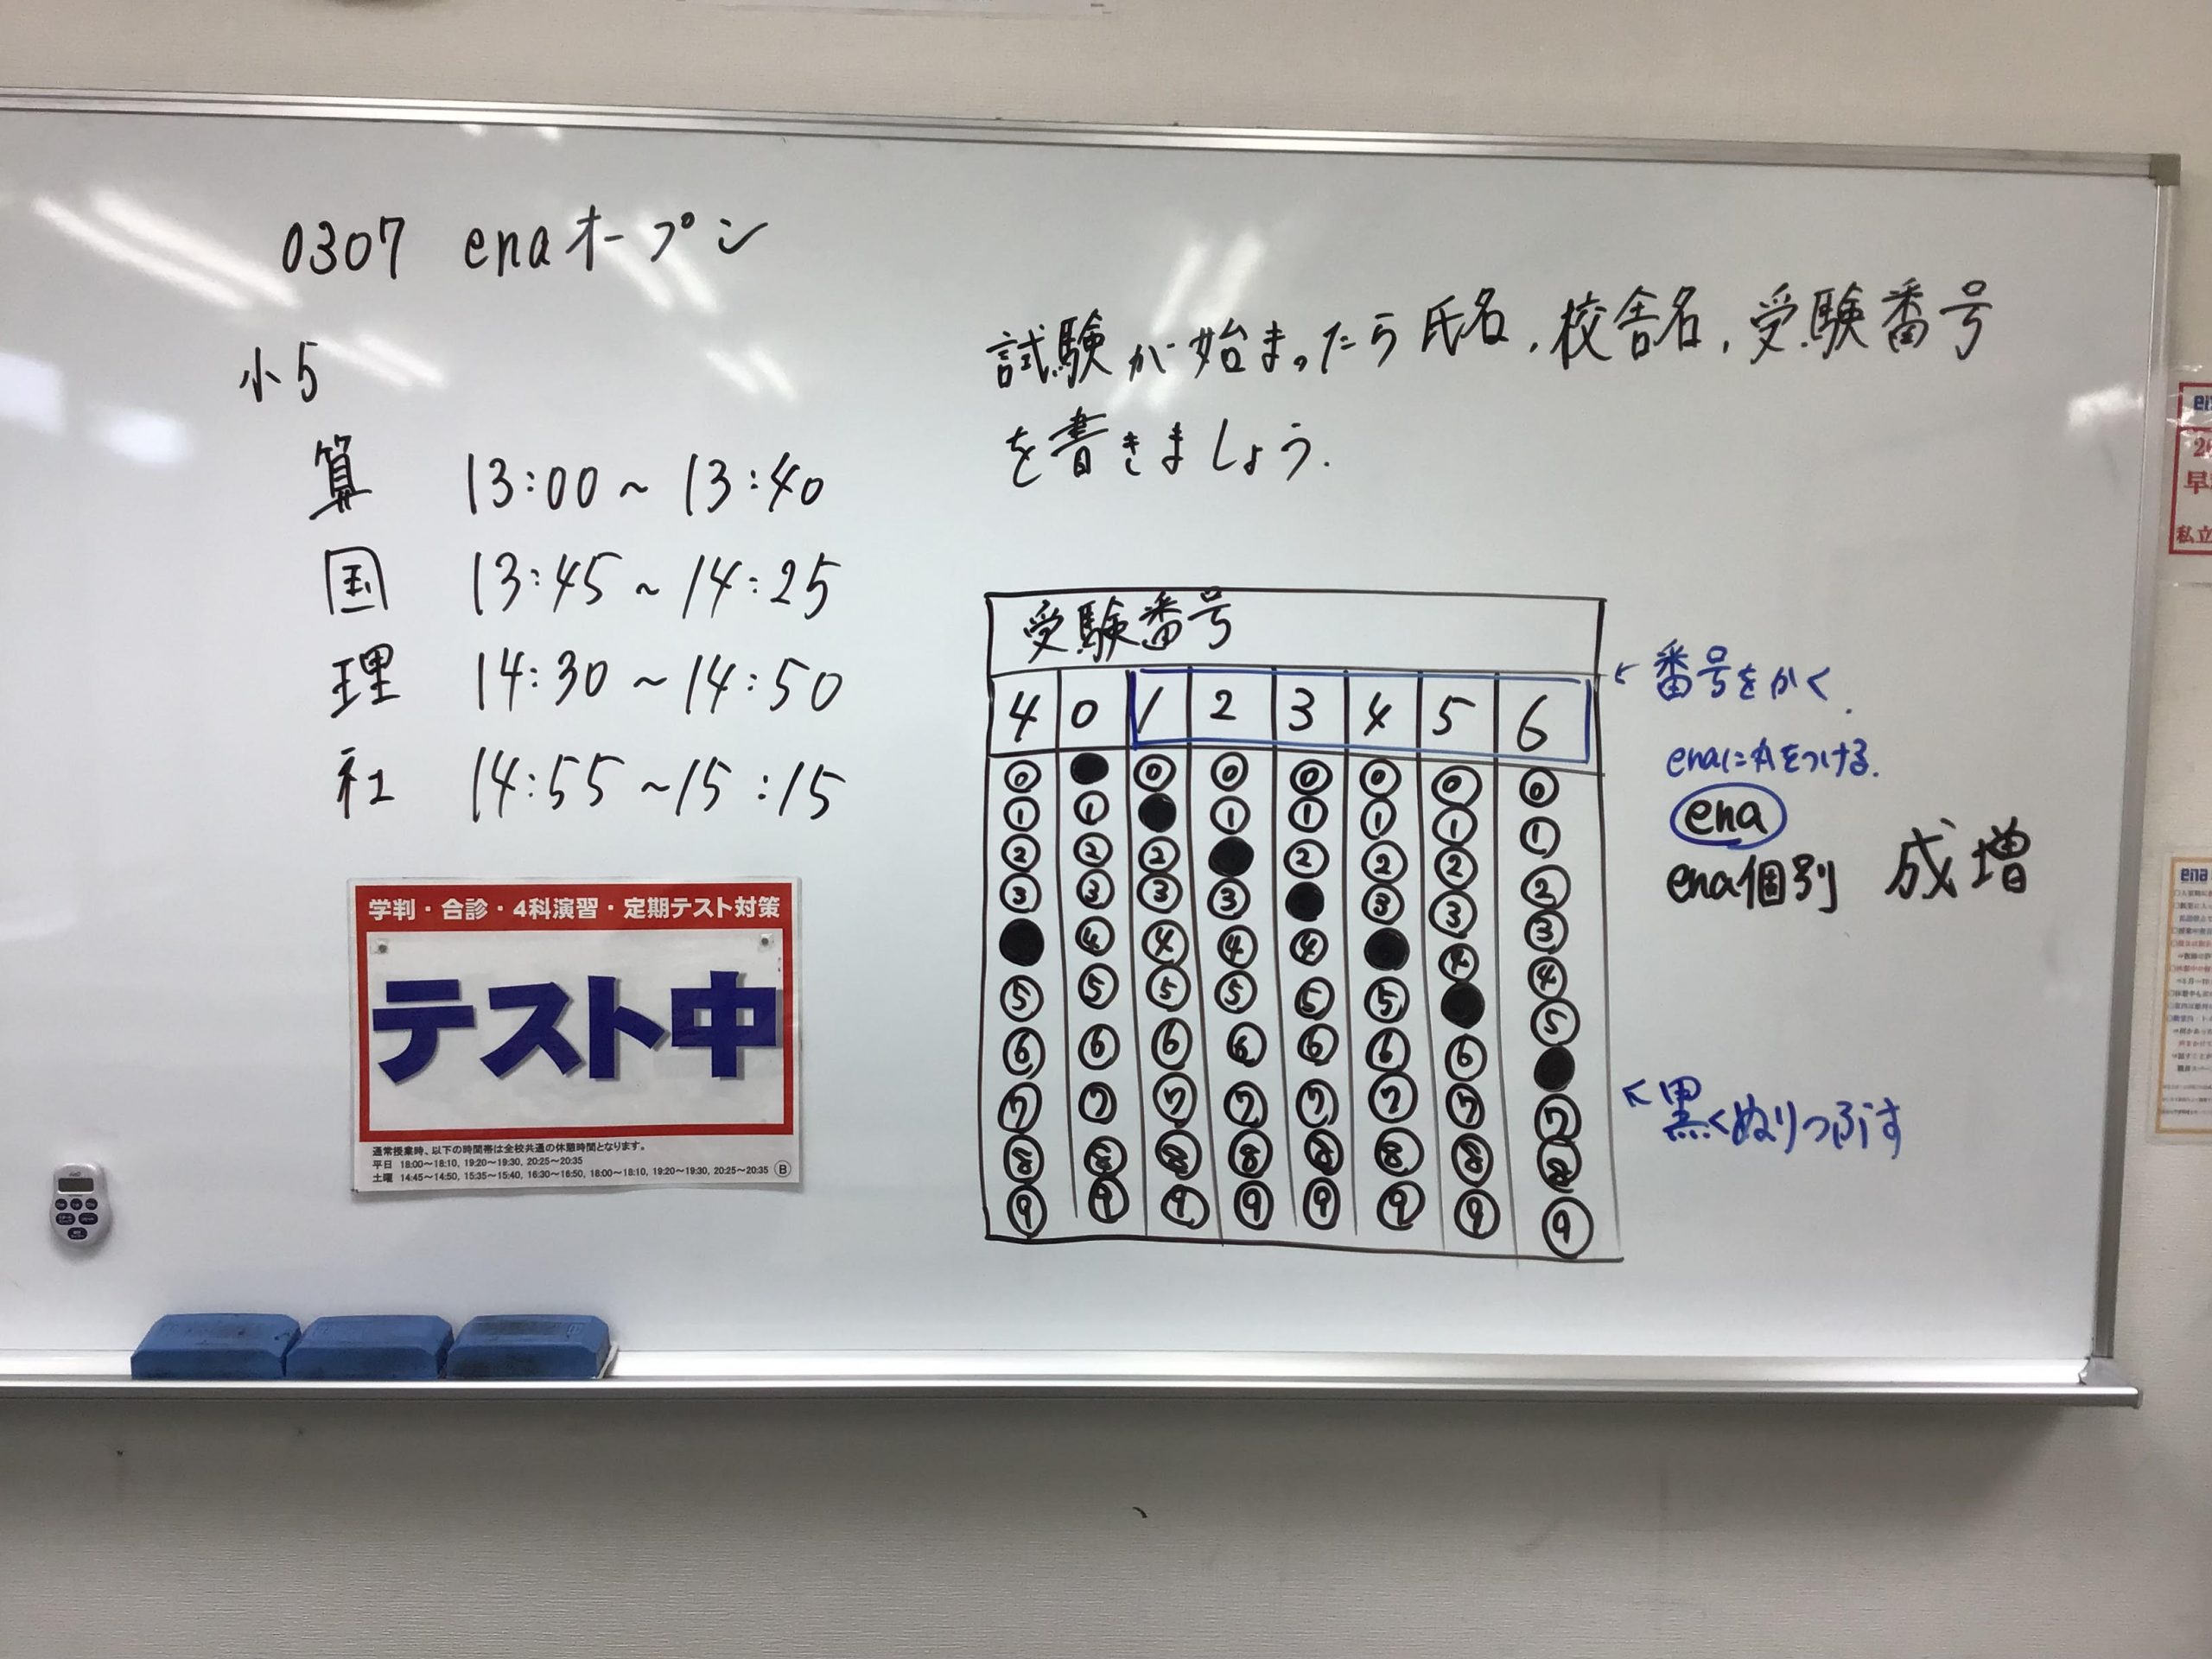 0307 enaオープン
小5
算 13:00～13:40
国 13:45～14:25
理 14:30～14:50
社 14:55～15:15
学判・合診・4科演習・定期テスト対策
テスト中
通常授業時、以下の時間帯は全校共通の休憩時間となります。
平日 18:00～18:10, 19:20～19:30, 20:25～20:35
土曜 14:45～14:50, 15:35～15:40, 16:30～16:50, 18:00～18:10, 19:20～19:30, 20:25～20:35 Ⓑ
試験が始まったら氏名,校舎名,受験番号
を書きましょう.
受験番号
4 0 1 2 3 4 5 6
⓪ ⓪ ⓪ ⓪ ⓪ ⓪ ⓪
① ① ① ① ① ① ①
② ② ② ② ② ② ②
③ ③ ③ ③ ③ ③ ③
④ ④ ④ ④ ④ ④
⑤ ⑤ ⑤ ⑤ ⑤ ⑤ ⑤
⑥ ⑥ ⑥ ⑥ ⑥ ⑥ ⑥
⑦ ⑦ ⑦ ⑦ ⑦ ⑦ ⑦ ⑦
⑧ ⑧ ⑧ ⑧ ⑧ ⑧ ⑧ ⑧
⑨ ⑨ ⑨ ⑨ ⑨ ⑨ ⑨ ⑨
←番号をかく.
enaに丸をつける.
ena
ena個別 成増
←黒くぬりつぶす
早
私立
ena